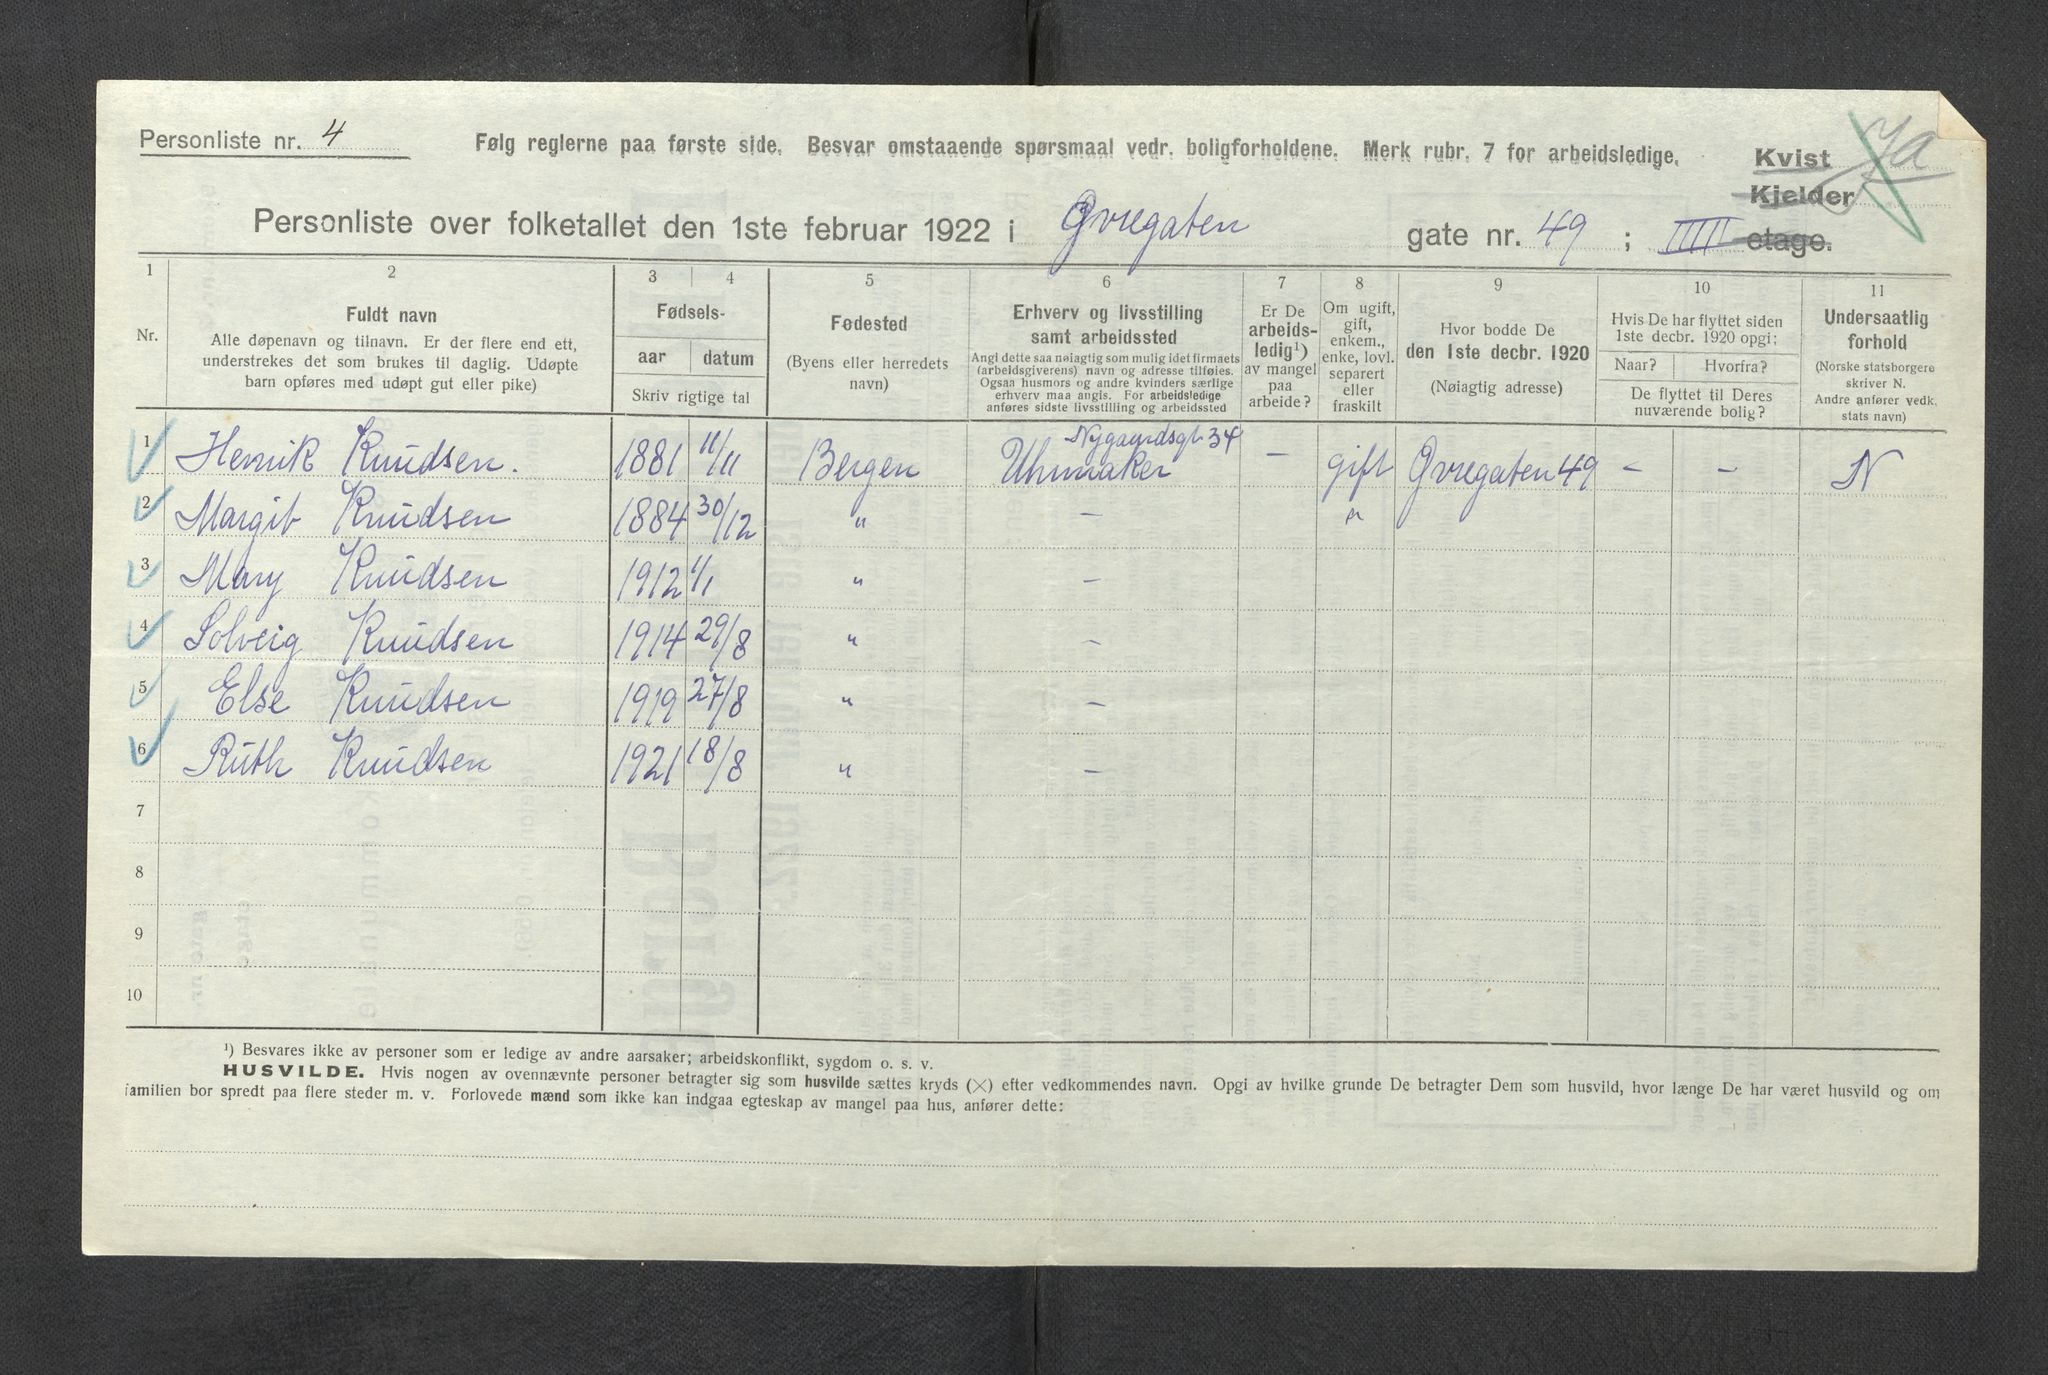 Personliste nr. 4 Følg reglerne paa første side. Besvar omstaaende spørsmaal vedr. boligforholdene. Merk rubr. 7 for arbeidsledige. Kvist Ja
Kjelder
Personliste over folketallet den 1ste februar 1922 i Øvregaten gate nr. 49 ; IIIII etage.
1 2 3 4 5 6 7 8 9 10 11
Nr.
Fuldt navn
Alle døpenavn og tilnavn. Er der flere end ett,
understrekes det som brukes til daglig. Udøpte
barn opføres med udøpt gut eller pike)
Fødsels-
aar datum
Skriv rigtige tal
Fødested
(Byens eller herredets
navn)
Erhverv og livsstilling
samt arbeidssted
Angi dette saa nøiagtig som mulig idet firmaets
(arbeidsgiverens) navn og adresse tilføies.
Ogsaa husmors og andre kvinders særlige
erhverv maa angis. For arbeidsledige
anføres sidste livsstilling og arbeidssted
Er De
arbeids-
ledig¹)
av mangel
paa
arbeide?
Om ugift,
gift,
enkem.,
enke, lovl.
separert
eller
fraskilt
Hvor bodde De
den 1ste decbr. 1920
(Nøiagtig adresse)
Hvis De har flyttet siden
1ste decbr. 1920 opgi:
Naar? Hvorfra?
De flyttet til Deres
nuværende bolig?
Undersaatlig
forhold
(Norske statsborgere
skriver N.
Andre anfører vedk.
stats navn)
Nygaardsgt 34
1 Henrik Knudsen. 1881 11/11 Bergen Uhrmaker – gift Øvregaten 49 – – N
2 Margit Knudsen 1884 30/12 " – "
3 Mary Knudsen 1912 1/1 " –
4 Solveig Knudsen 1914 29/8 " –
5 Else Knudsen 1919 27/8 " –
6 Ruth Knudsen 1921 18/8 " –
7
8
9
10
¹) Besvares ikke av personer som er ledige av andre aarsaker; arbeidskonflikt, sygdom o. s. v.
HUSVILDE. Hvis nogen av ovennævnte personer betragter sig som husvilde sættes kryds (×) efter vedkommendes navn. Opgi av hvilke grunde De betragter Dem som husvild, hvor længe De har været husvild og om
familien bor spredt paa flere steder m. v. Forlovede mænd som ikke kan indgaa egteskap av mangel paa hus, anfører dette: